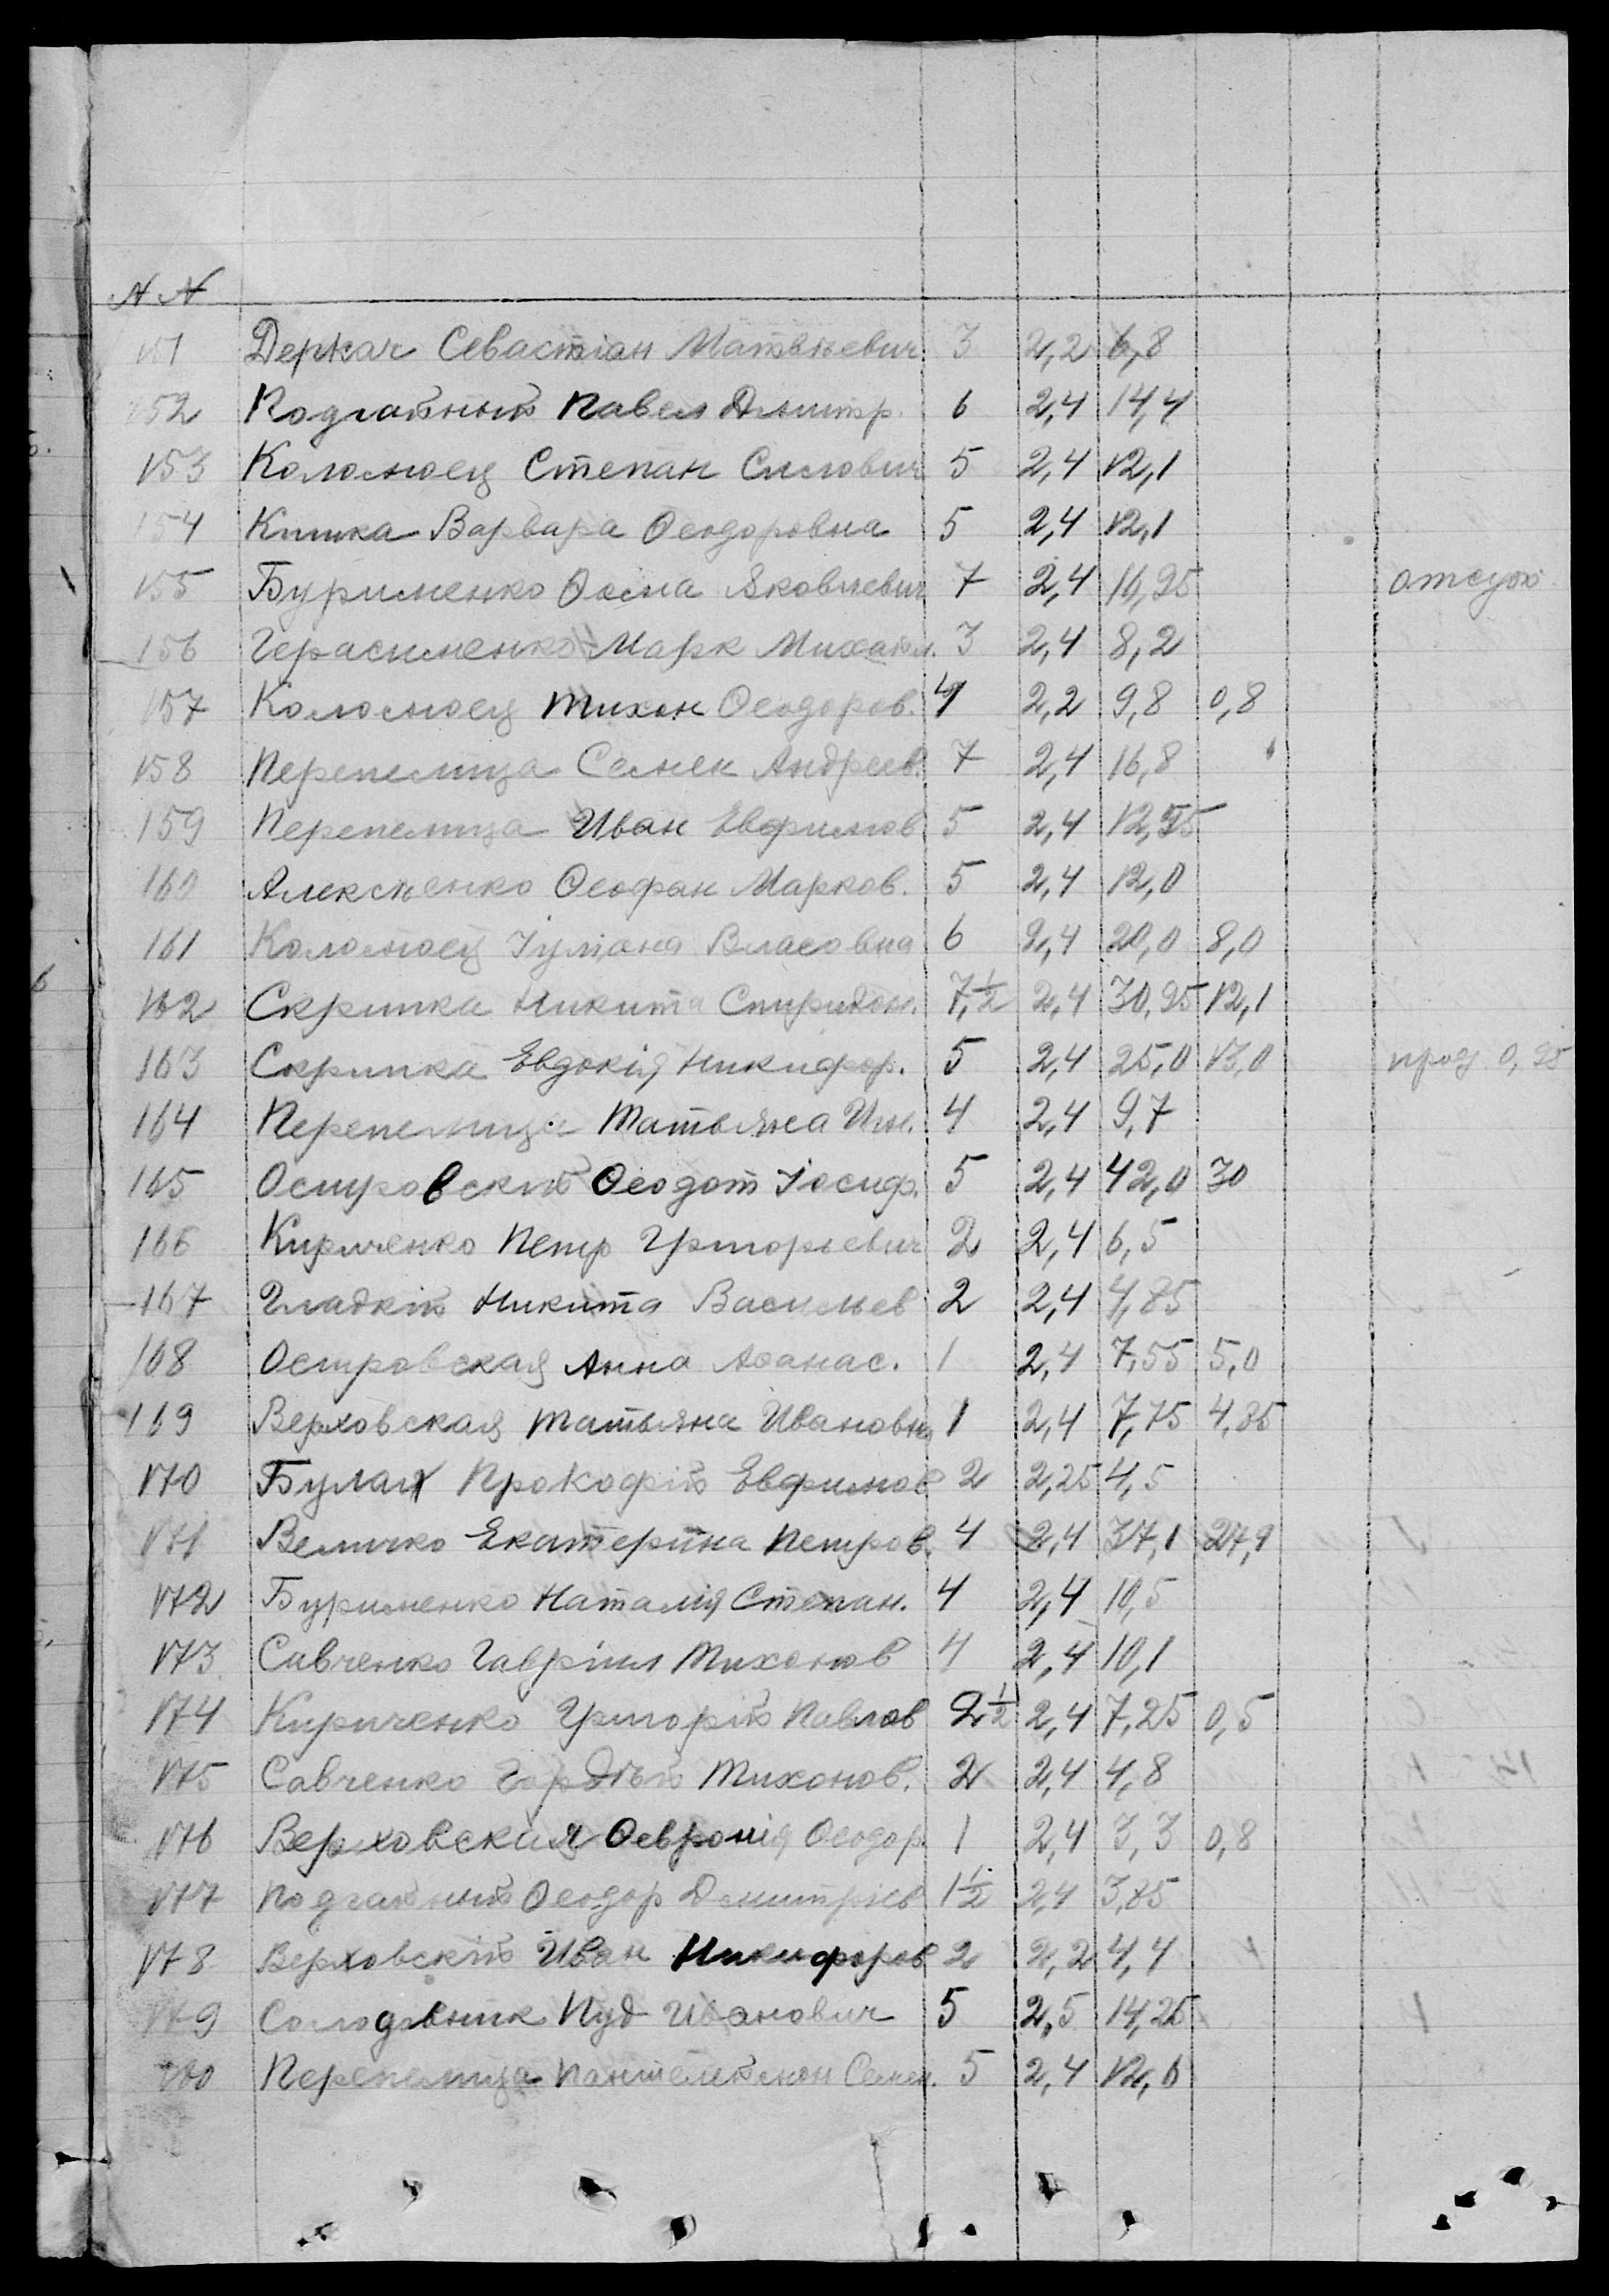 N N
151 Деркач Севастіан Матвѣевич 3 2,2 6,8
152 Подгайный Павел Дмитр. 6 2,4 14,4
153 Коломоец Степан Силович 5 2,4 12,1
154 Кишка Варвара Ѳеодоровна 5 2,4 12,1
155 Бурименко Ѳома Яковлевич 7 2,4 16,95 отсут
156 Герасименко Марк Михайл. 3 2,4 8,2
157 Коломоец Тихон Ѳеодоров. 4 2,2 9,8 0,8
158 Перепелица Семен Андреев. 7 2,4 16,8
159 Перепелица Иван Евфимов 5 2,4 12,25
160 Алексѣенко Ѳеофан Марков. 5 2,4 12,0
161 Коломоец Іуліана Власовна 6 2,4 20,0 8,0
162 Скрипка Никита Спиридон. 7,½ 2,4 30,25 12,1
163 Скрипка Евдокія Никифор. 5 2,4 25,0 13,0 прод. 0,25
164 Перепелица Татьяна 4 2,4 9,7
165 Островскій Ѳеодот Іосиф. 5 2,4 42,0 30
166 Кириченко Петр Григорьевич 2 2,4 6,5
167 Гладкій Никита Васильев 2 2,4 4,85
168 Островская Анна Аѳанас. 1 2,4 7,55 5,0
169 Верховская Татьяна Ивановна 1 2,4 7,75 4,85
170 Булах Прокофій Евфимов 2 2,25 4,5
171 Величко Екатерина Петров. 4 2,4 37,1 27,9
172 Бурименко Наталія Степан. 4 2,4 10,5
173 Савченко Гавріил Тихонов 4 2,4 10,1
174 Кириченко Григорій Павлов 2½ 2,4 7,25 0,5
175 Савченко Гордѣй Тихонов. 2 2,4 4,8
176 Верховская Ѳеврония Ѳеодор 1 2,4 3,3 0,8
177 Подгайный Ѳеодор Дмитріев 1½ 2,4 3,85
178 Верховскій Иван Никифоров 2 2,2 4,4
179 Солодовник Пуд Иванович 5 2,5 14,25
180 Перепелица Пантелеймон Семен. 5 2,4 12,6